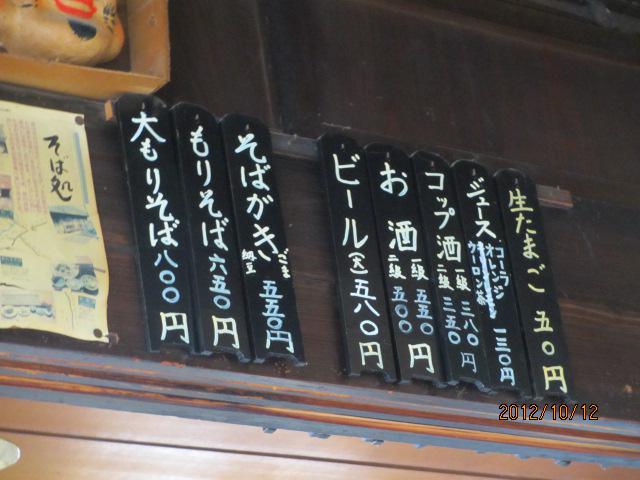 そば処
大もりそば 八〇〇円
もりそば 六五〇円
そばがき ごま 納豆 五五〇円
ビール(大) 五八〇円
お酒 一級 五五〇 二級 五〇〇 円
コップ酒 一級 三八〇 二級 三五〇 円
ジュース コーラ オレンジ ウーロン茶 一三〇円
生たまご 五〇円
2012/10/12